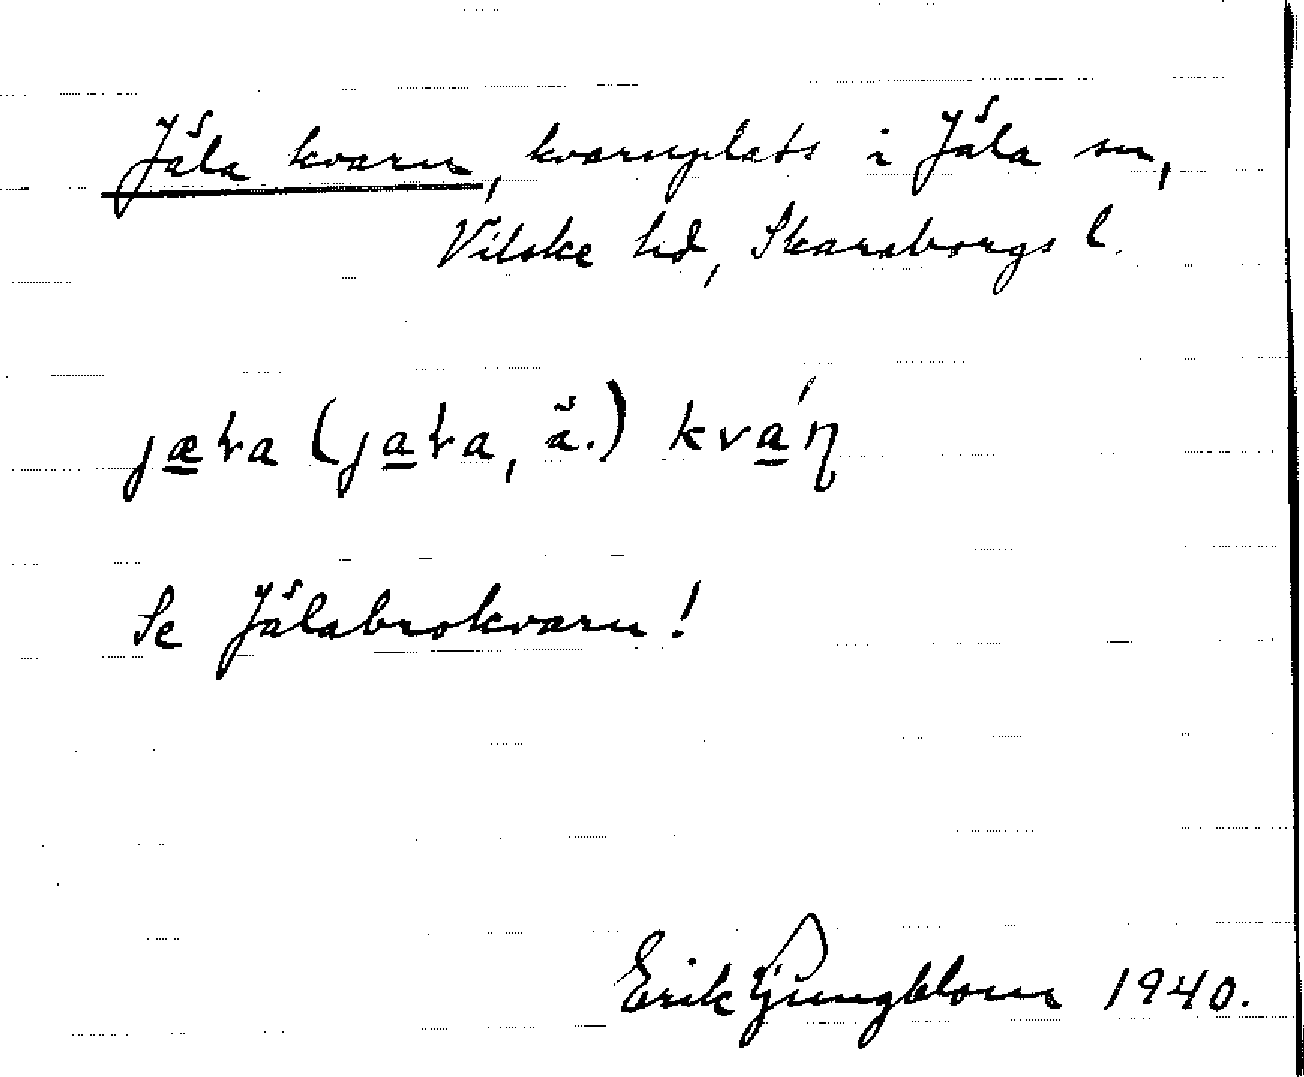 Jäla kvarn, kvarnplats i Jäla sn,
Vilske hd, Skaraborgs l.
jæɽa (jaɽa, ä.) kva´ɳ
Se Jälabrokvarn!
Erik Ljungblom 1940.